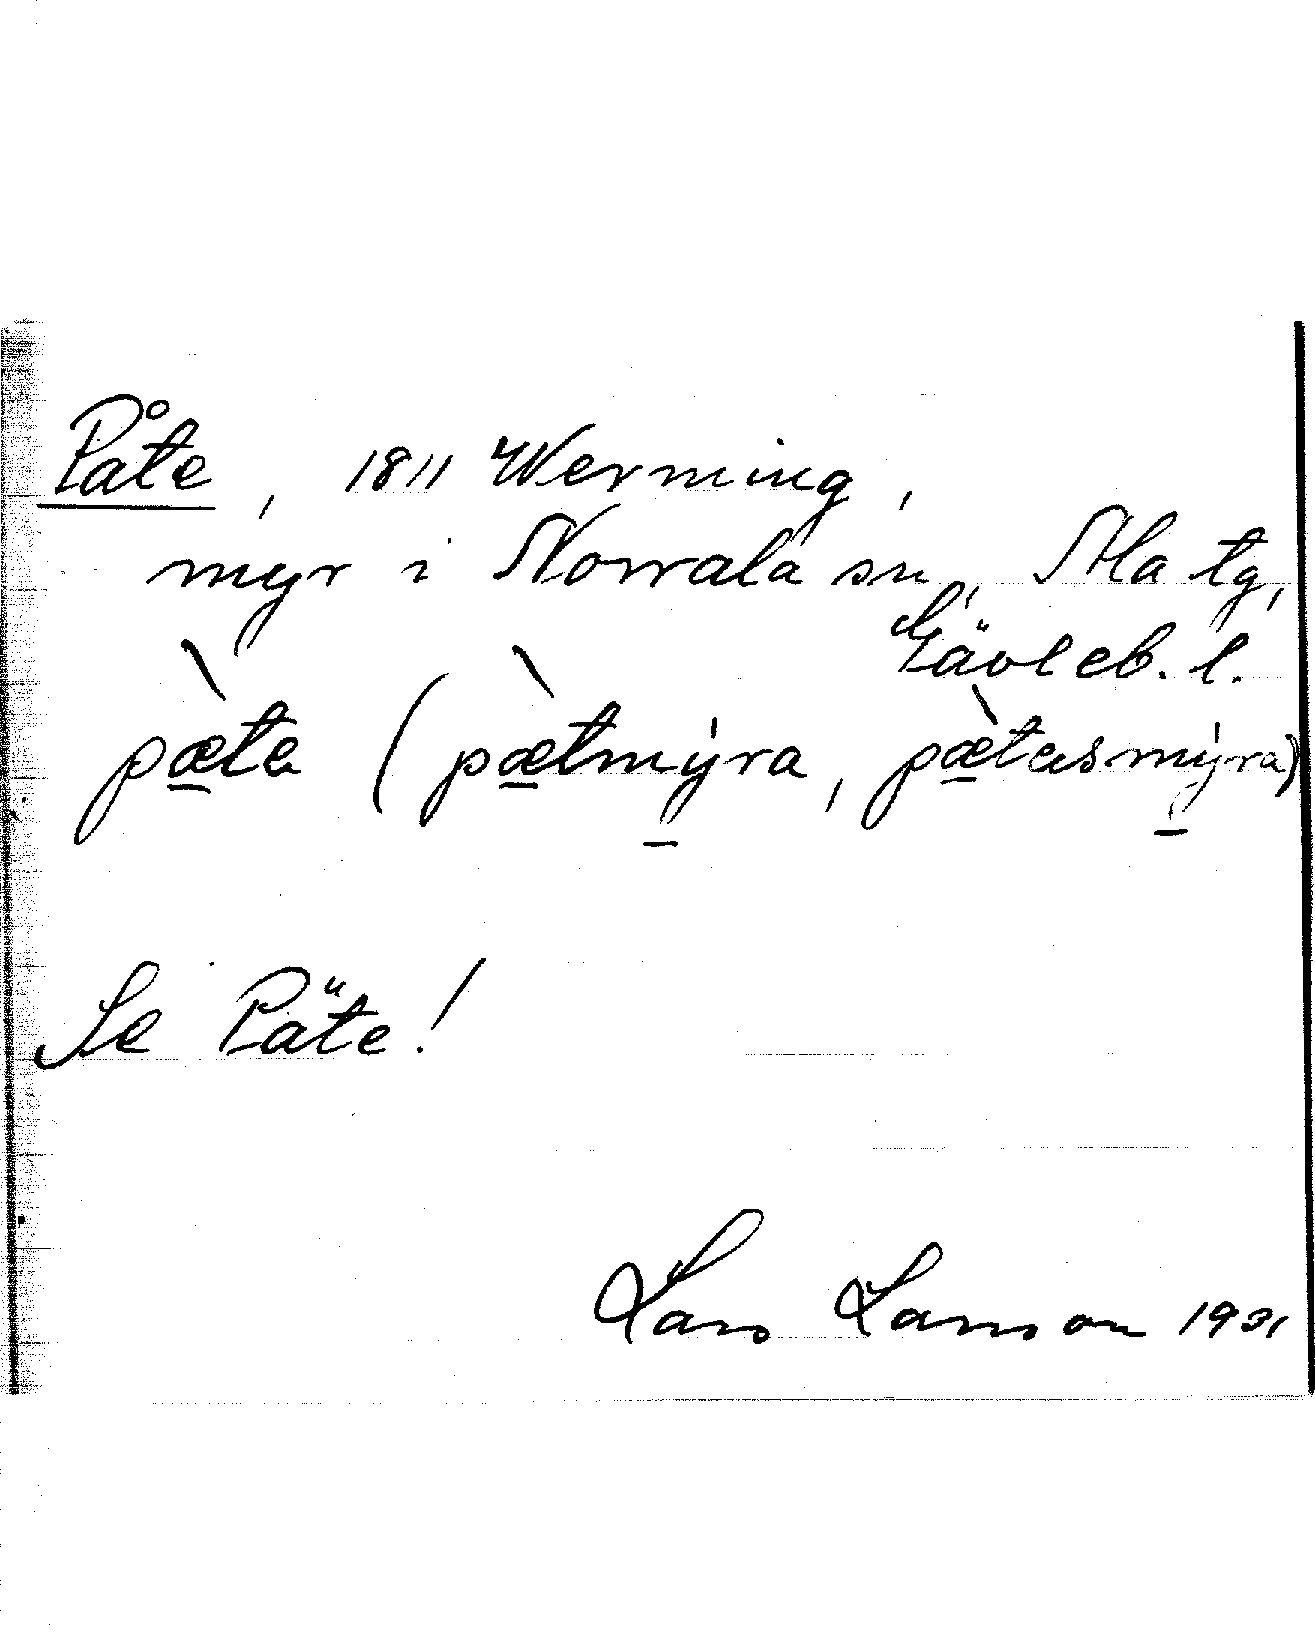 Påte, 1811 Werming,
myr i Norrala sn, Ala tg,
Gävleb. l.
pæ̀ta (pæ̀tmy̍ra, pæ̀tasmy̍ra)
Se Päte!
Lars Larsson 1931